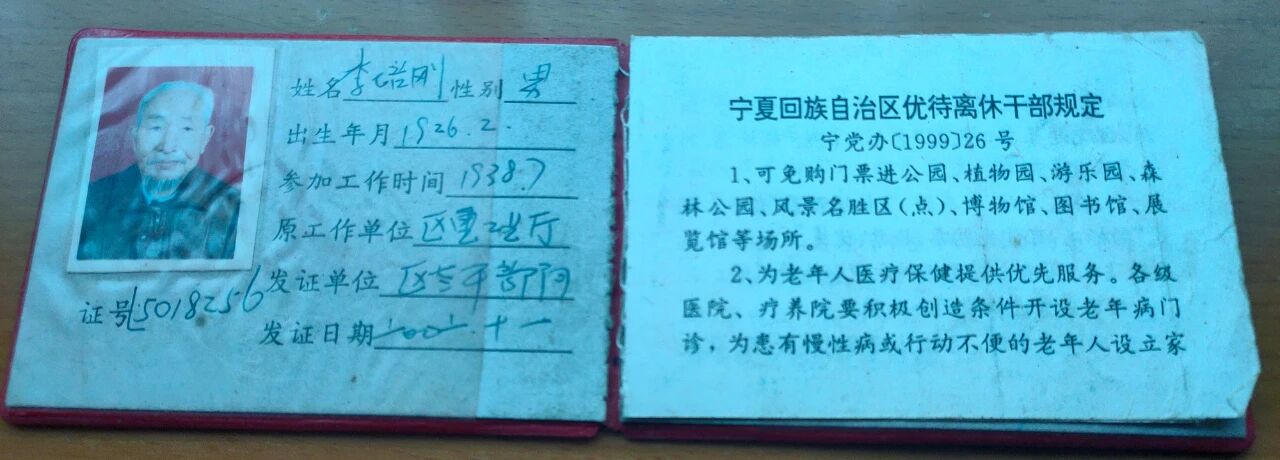 姓名李培刚 性别 男
出生年月1926.2.
参加工作时间 1938.7
原工作单位区重工业厅
发证单位 区老干部局
证号5018256
发证日期 十一
宁夏回族自治区优待离休干部规定
宁党办〔1999〕26号
1、可免购门票进公园、植物园、游乐园、森
林公园、风景名胜区(点)、博物馆、图书馆、展
览馆等场所。
2、为老年人医疗保健提供优先服务。各级
医院、疗养院要积极创造条件开设老年病门
诊,为患有慢性病或行动不便的老年人设立家